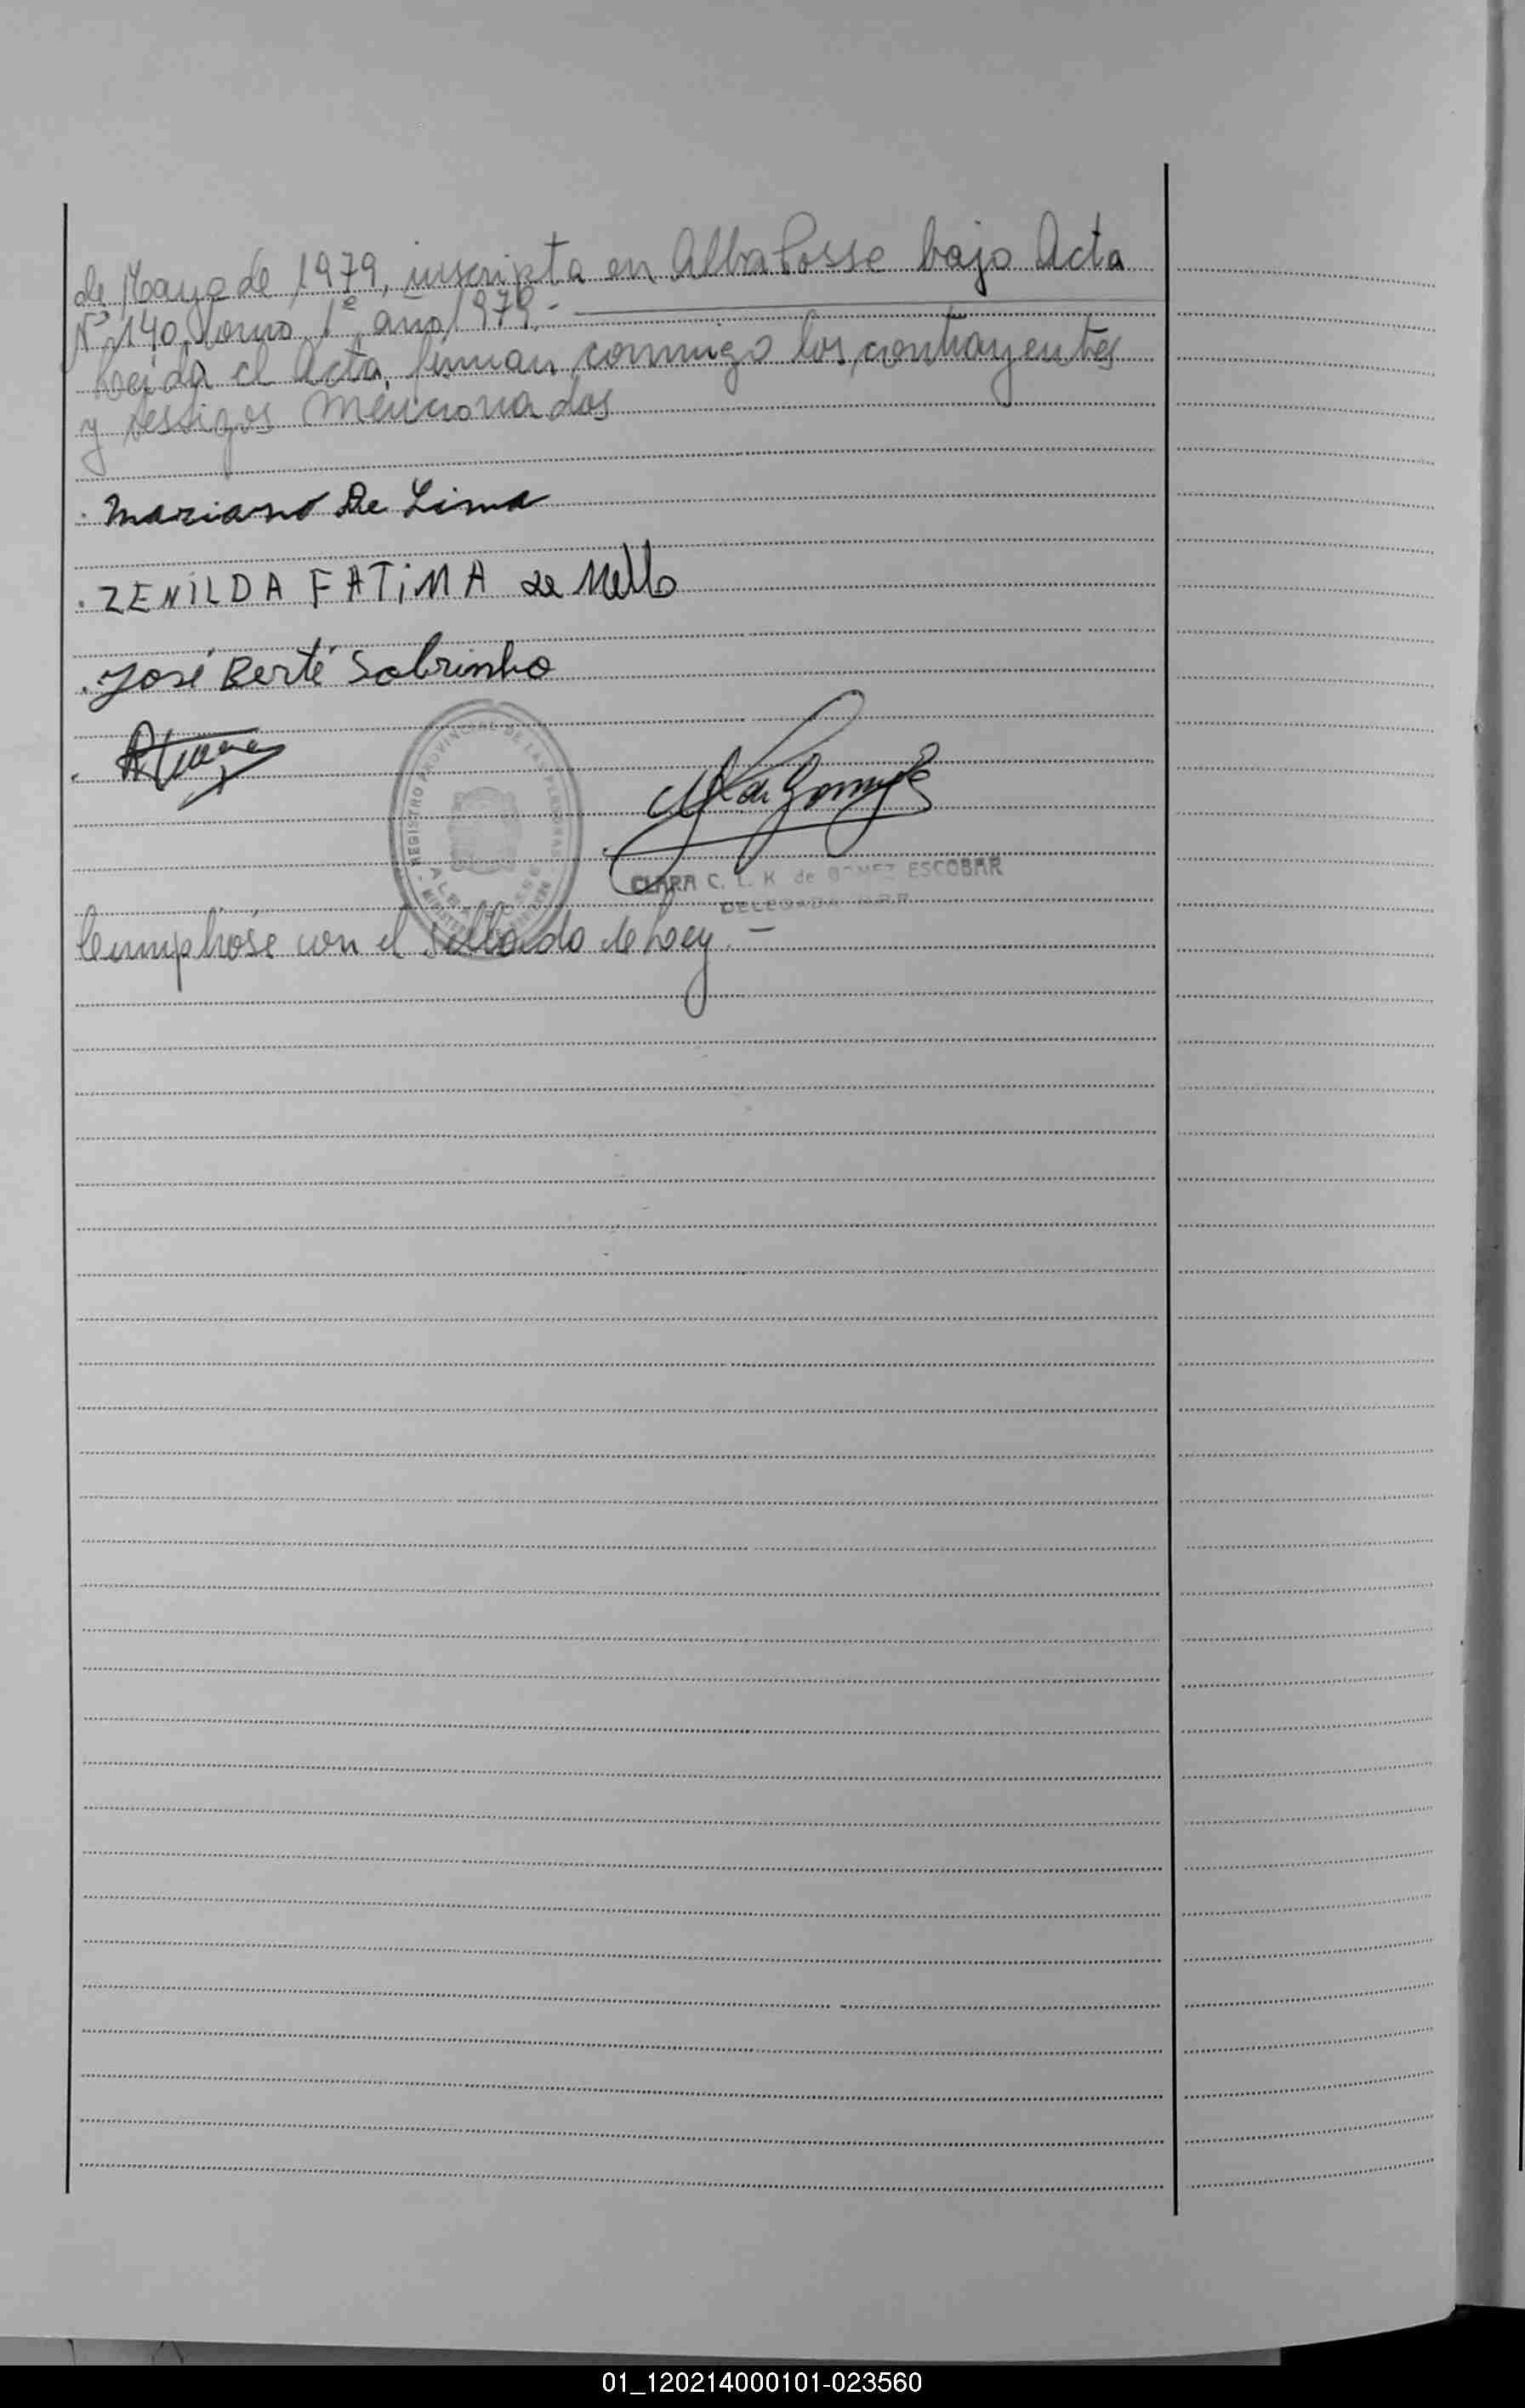 de Mayo de 1979, inscripta en Alba Posse bajo Acta
Nº 140, tomo 1º año 1979.-
Leida el Acta, firman conmigo los contrayentes
y testigos mencionados
. Mariano De Lima
. ZENILDA FATiMA de Mello
. José Berté Sobrinho
REGISTRO PROVINCIAL DE LAS PERSONAS
ALBA POSSE
CLARA C. L. K. de GOMEZ ESCOBAR
DELEGADA
Cumplióse con el sellado de Ley. -
01_120214000101-023560